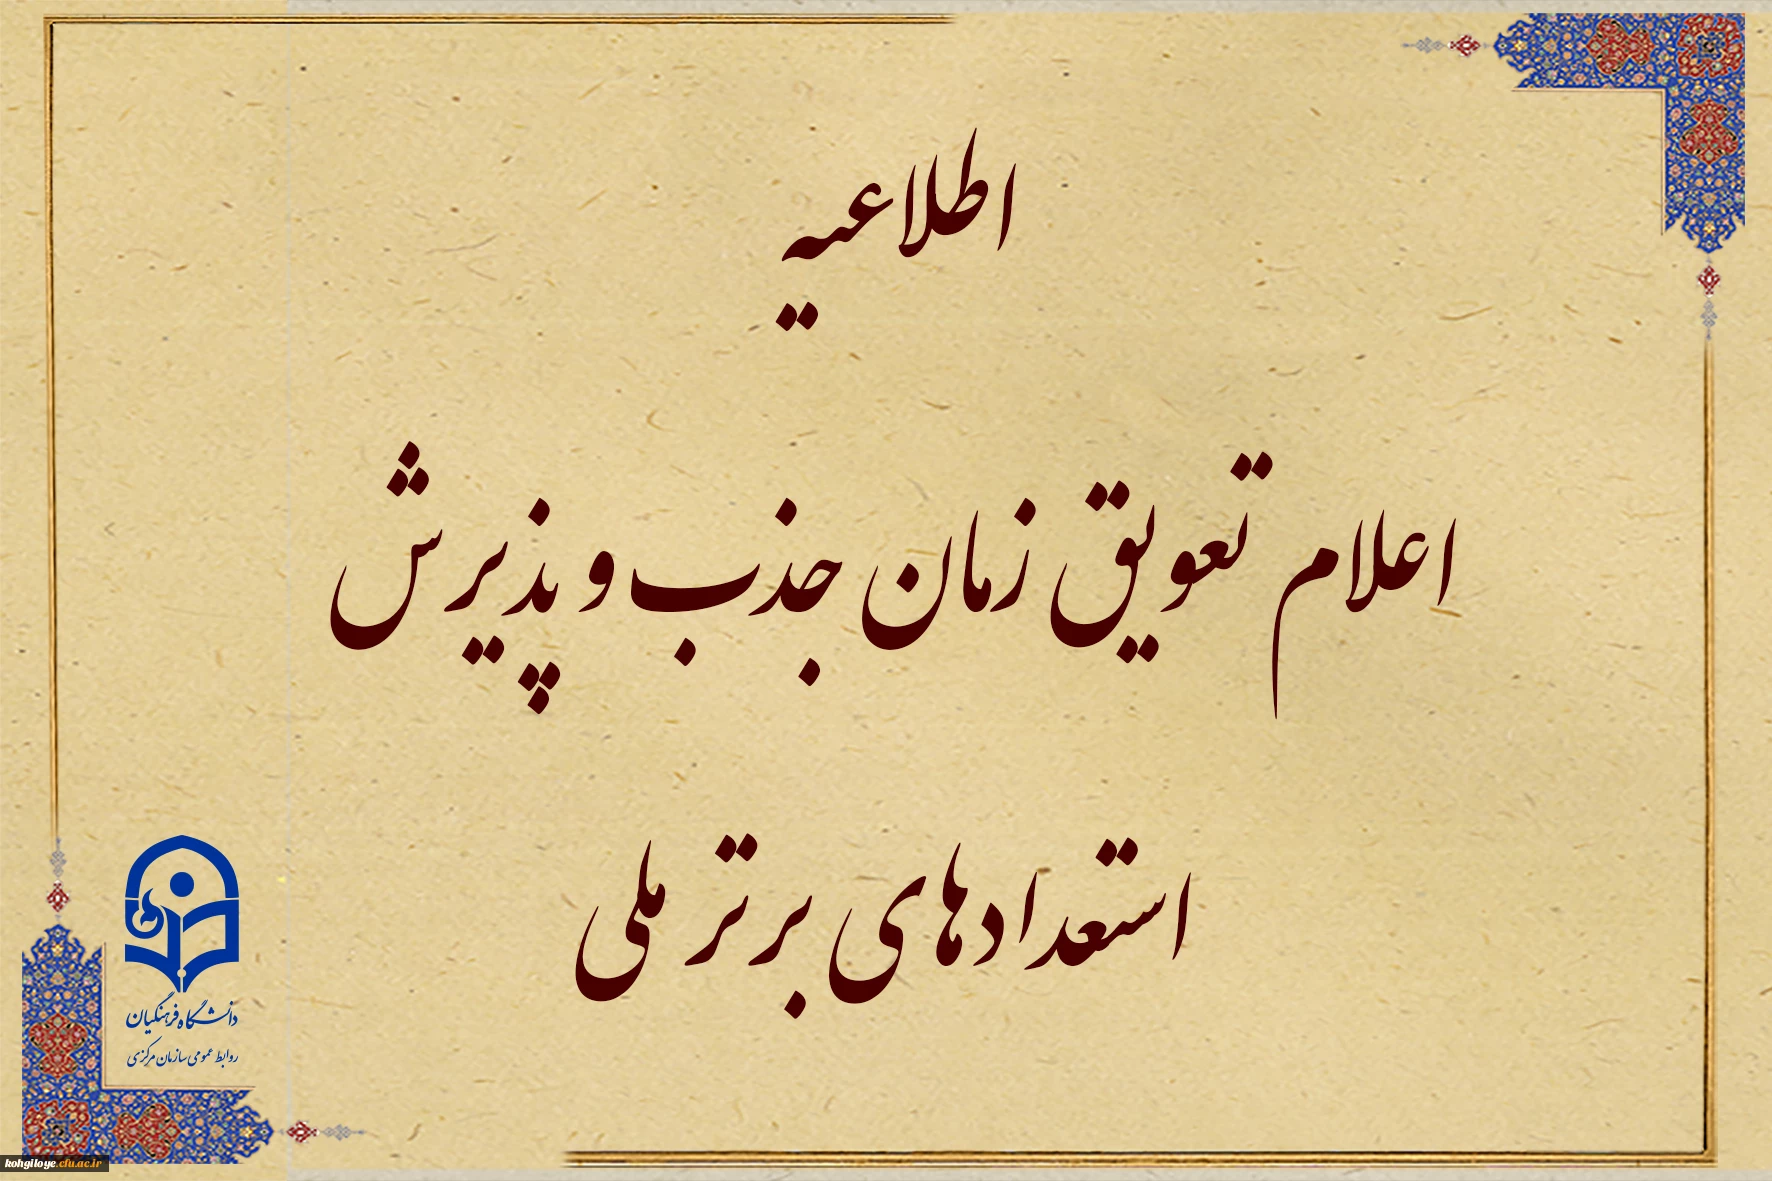 اطلاعیه
اعلام تعویق زمان جذب و پذیرش
استعدادهای برتر ملی
دانشگاه فرهنگیان
روابط عمومی سازمان مرکزی
kohgiloye.cfu.ac.ir